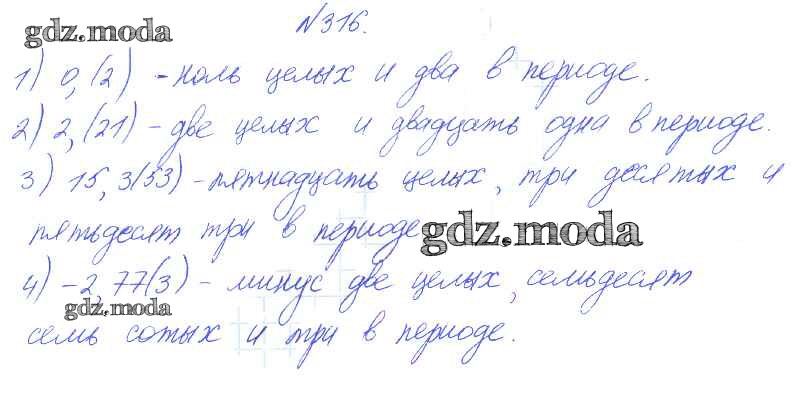 №316.
gdz.moda
1) 0,(2) - ноль целых и два в периоде.
2) 2,(21) - две целых и двадцать одна в периоде.
3) 15,3(53) - пятнадцать целых, три десятых и
пятьдесят три в периоде
gdz.moda
4) -2,77(3) - минус две целых, семьдесят
gdz.moda
семь сотых и три в периоде.